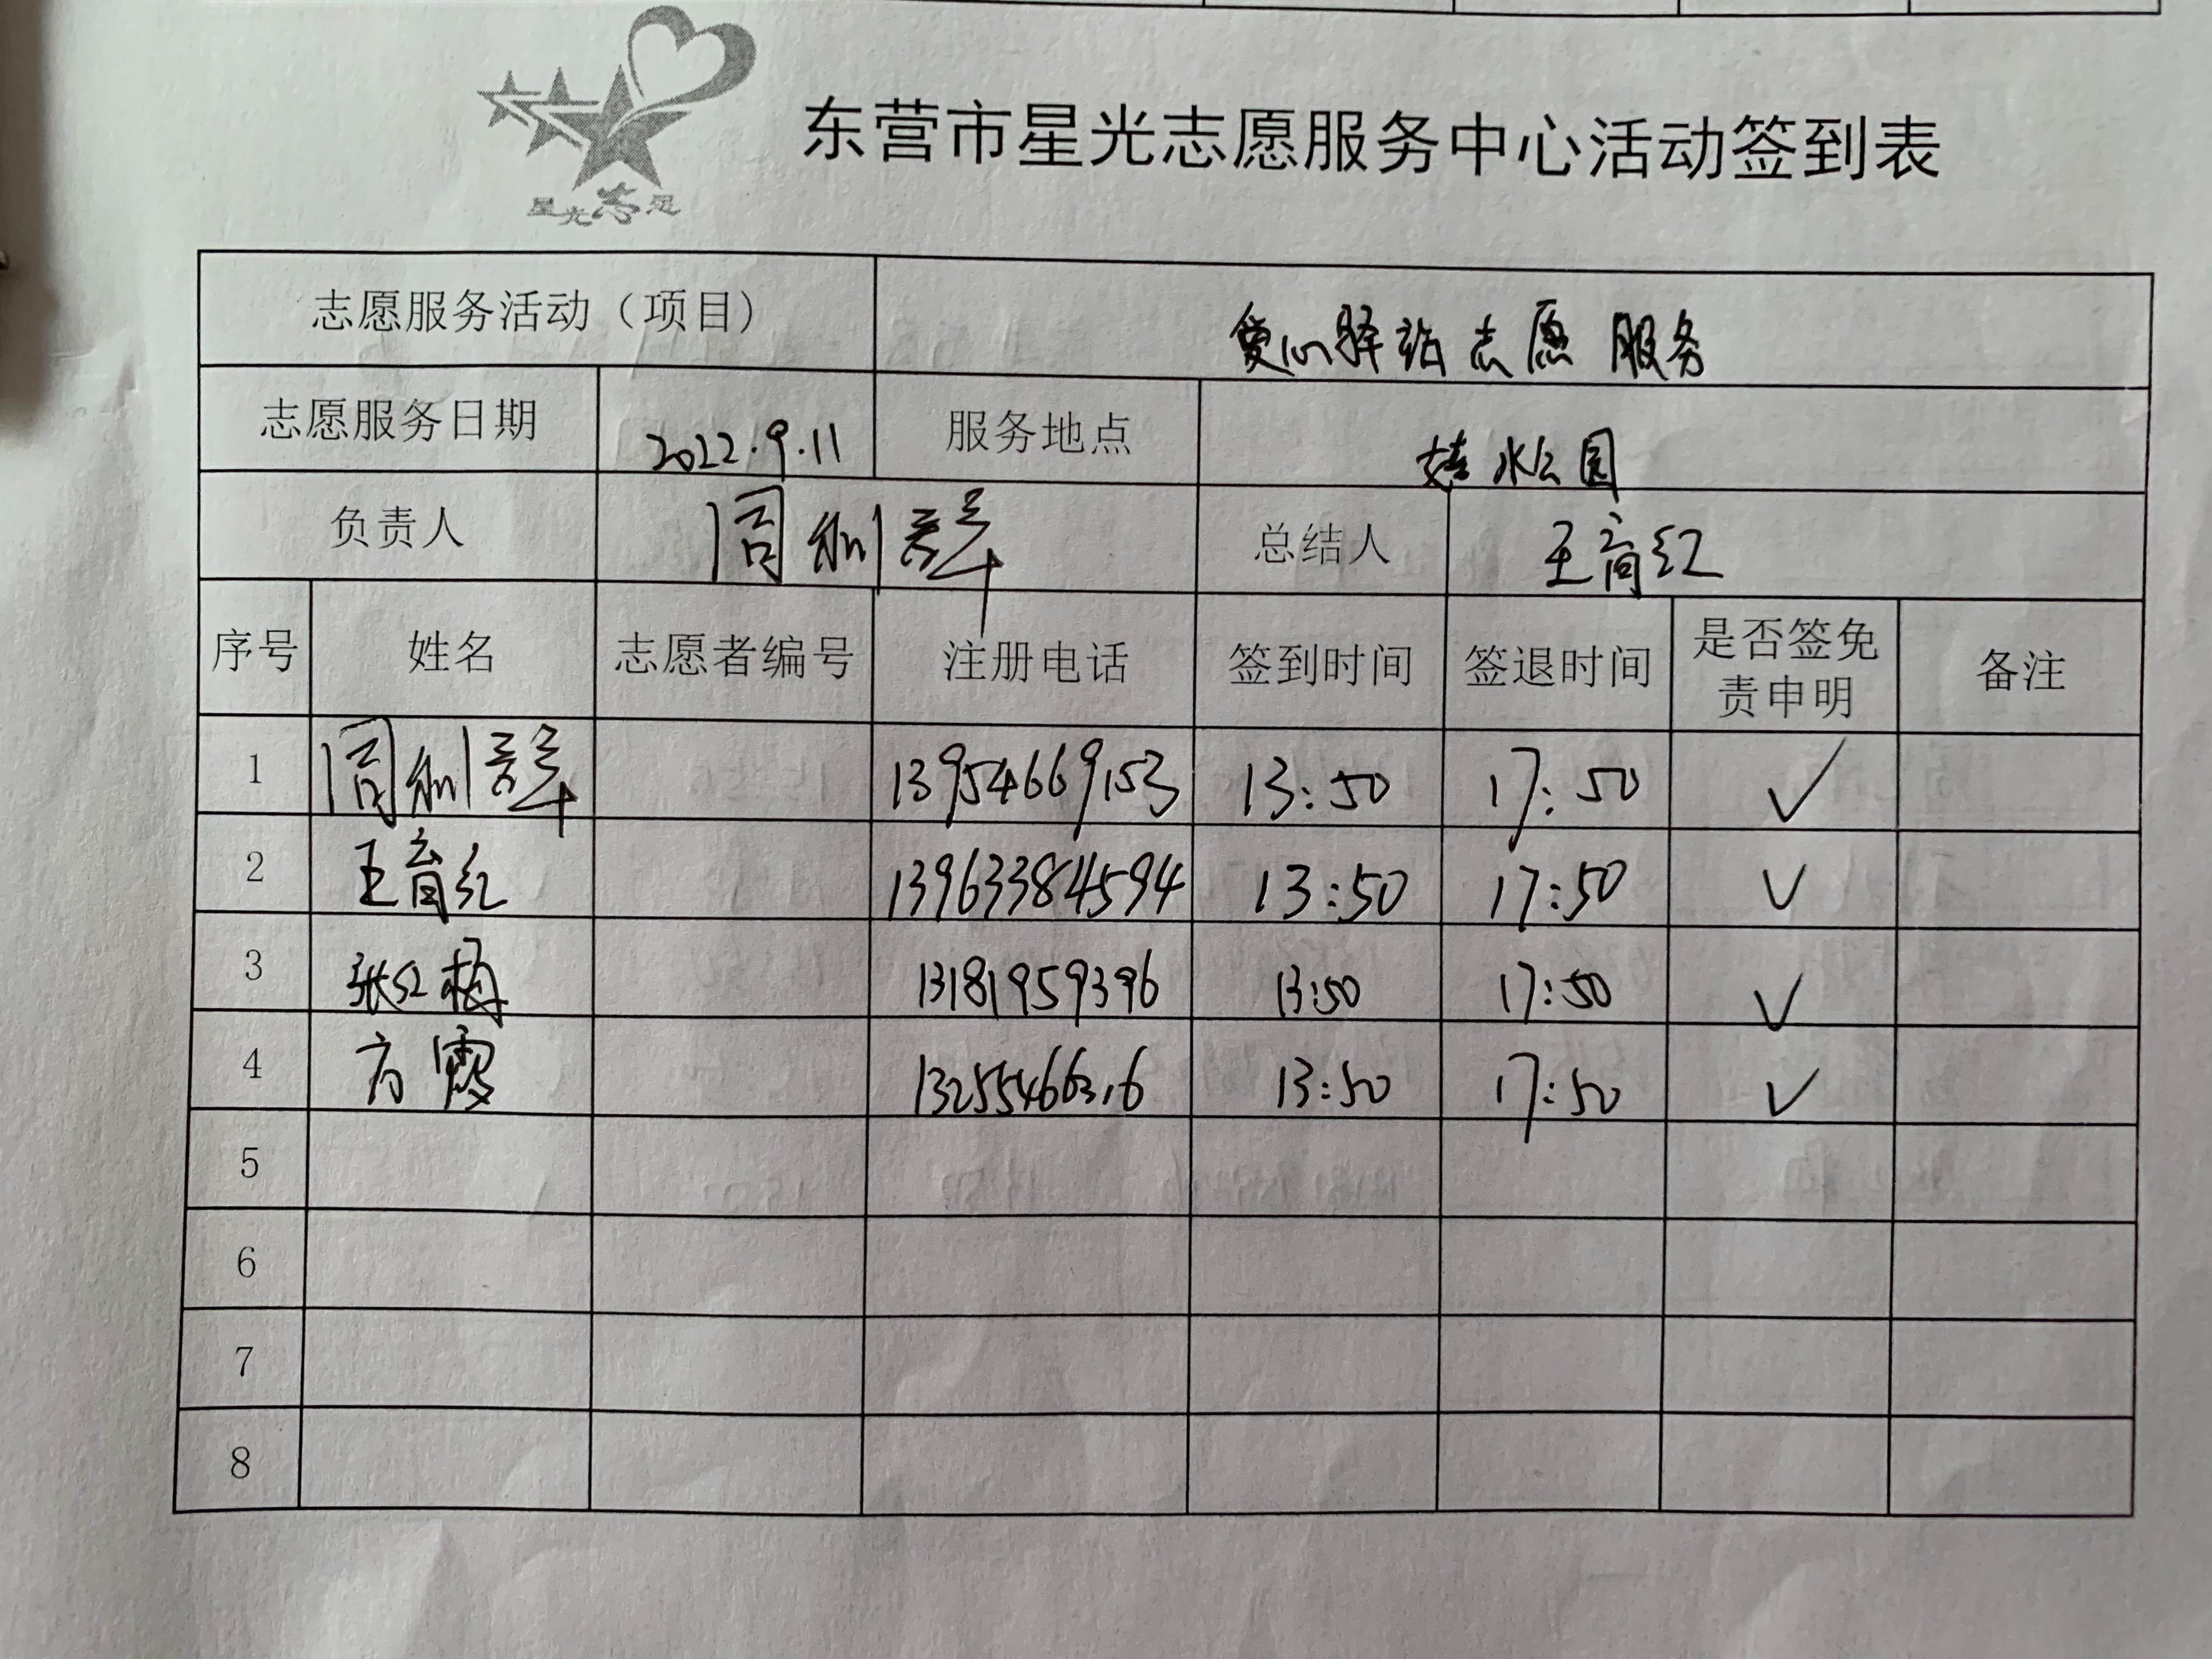 星光志愿
东营市星光志愿服务中心活动签到表
志愿服务活动（项目） 爱心驿站志愿服务
志愿服务日期 2022.9.11 服务地点 嬉水公园
负责人 总结人 王育红
序号 姓名 志愿者编号 注册电话 签到时间 签退时间 是否签免责申明 备注
1 13954669153 13:50 17:50 ✓
2 王育红 13963384594 13:50 17:50 ✓
3 张红梅 13181959396 13:50 17:50 ✓
4 方霞 13255466316 13:50 17:50 ✓
5
6
7
8